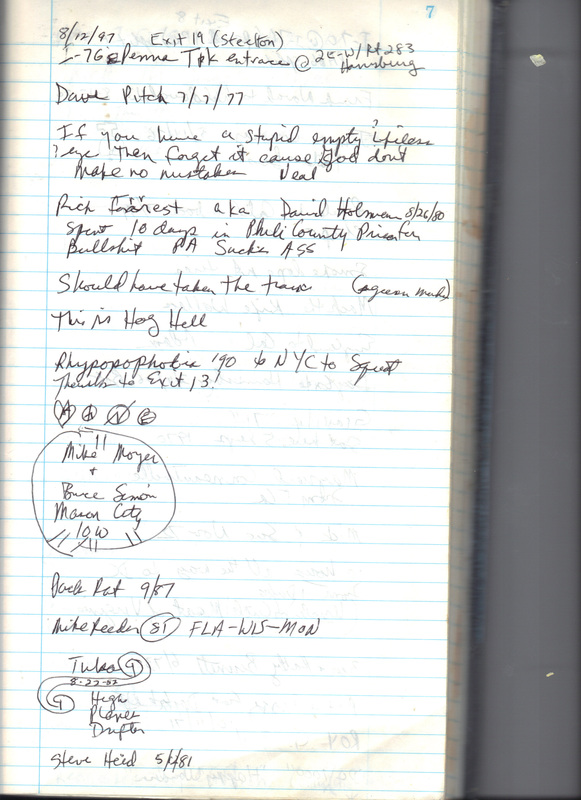 7
8/12/97 Exit 19 (Steelton)
I-76 Penna Tpk entrace @ 2E-W/Rt 283
Harrisburg
Dave Pitch 7/7/77
If you have a stupid empty lifeless
? eye Then forget it cause God dont
make no mistakes Neal
Rich Forrest aka David Holman 8/26/80
Spent 10 days in Phili County Prison for
Bullshit PA Sucks ASS
Should have taken the train
This is Hog Hell
Rhypopophobia '90 to NYC to Squat
Thumbs to Exit 13!
A A N E
Mike Moyer
+
Bruce Simon
Mason City
IOW
Pack Rat 9/87
Mike Reeder 81 FLA-WIS-MON
9
8-27-82
9 High
Planes
Drifter
Steve Heid 5/4/81